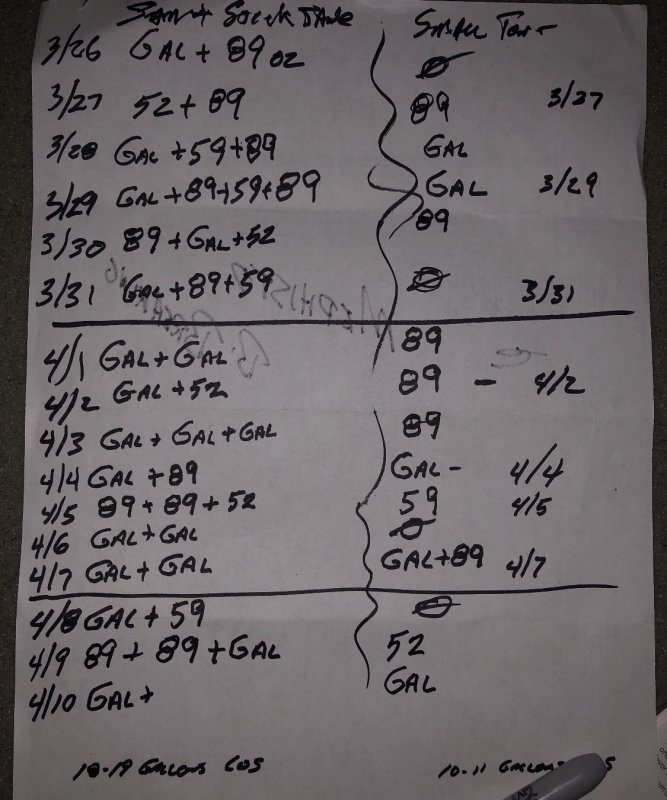 Tank
3/26 GAL + 89 oz Ø
3/27 52 + 89 89 3/27
3/28 GAL + 59 + 89 GAL
3/29 GAL + 89 + 59 + 89 GAL 3/29
89
3/30 89 + GAL + 52
3/31 GAL + 89 + 59 Ø 3/31
4/1 GAL + GAL 89
4/2 GAL + 52 89 - 4/2
4/3 GAL + GAL + GAL 89
4/4 GAL + 89 GAL - 4/4
4/5 89 + 89 + 52 59 4/5
4/6 GAL + GAL Ø
4/7 GAL + GAL GAL + 89 4/7
4/8 GAL + 59 Ø
4/9 89 + 89 + GAL 52
4/10 GAL + GAL
10-19 GALLONS 10-11